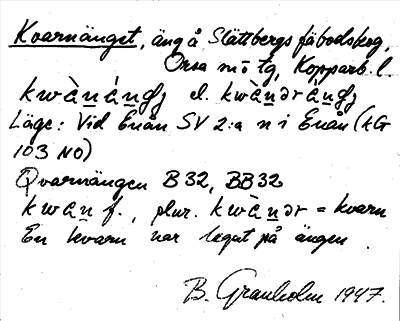 Kvarnänget, äng å Slättbergs fäbodskog,
Orsa sn o tg, Kopparb. l.
kwànáŋgj el. kwànəráŋgj
Läge: Vid Enån SV 2:a n i Enån (kG
103 NO)
Qvarnängen B 32, BB 32
kwàn f., plur. kwànər = kvarn
En kvarn har legat på ängen.
B. Granholm 1947.